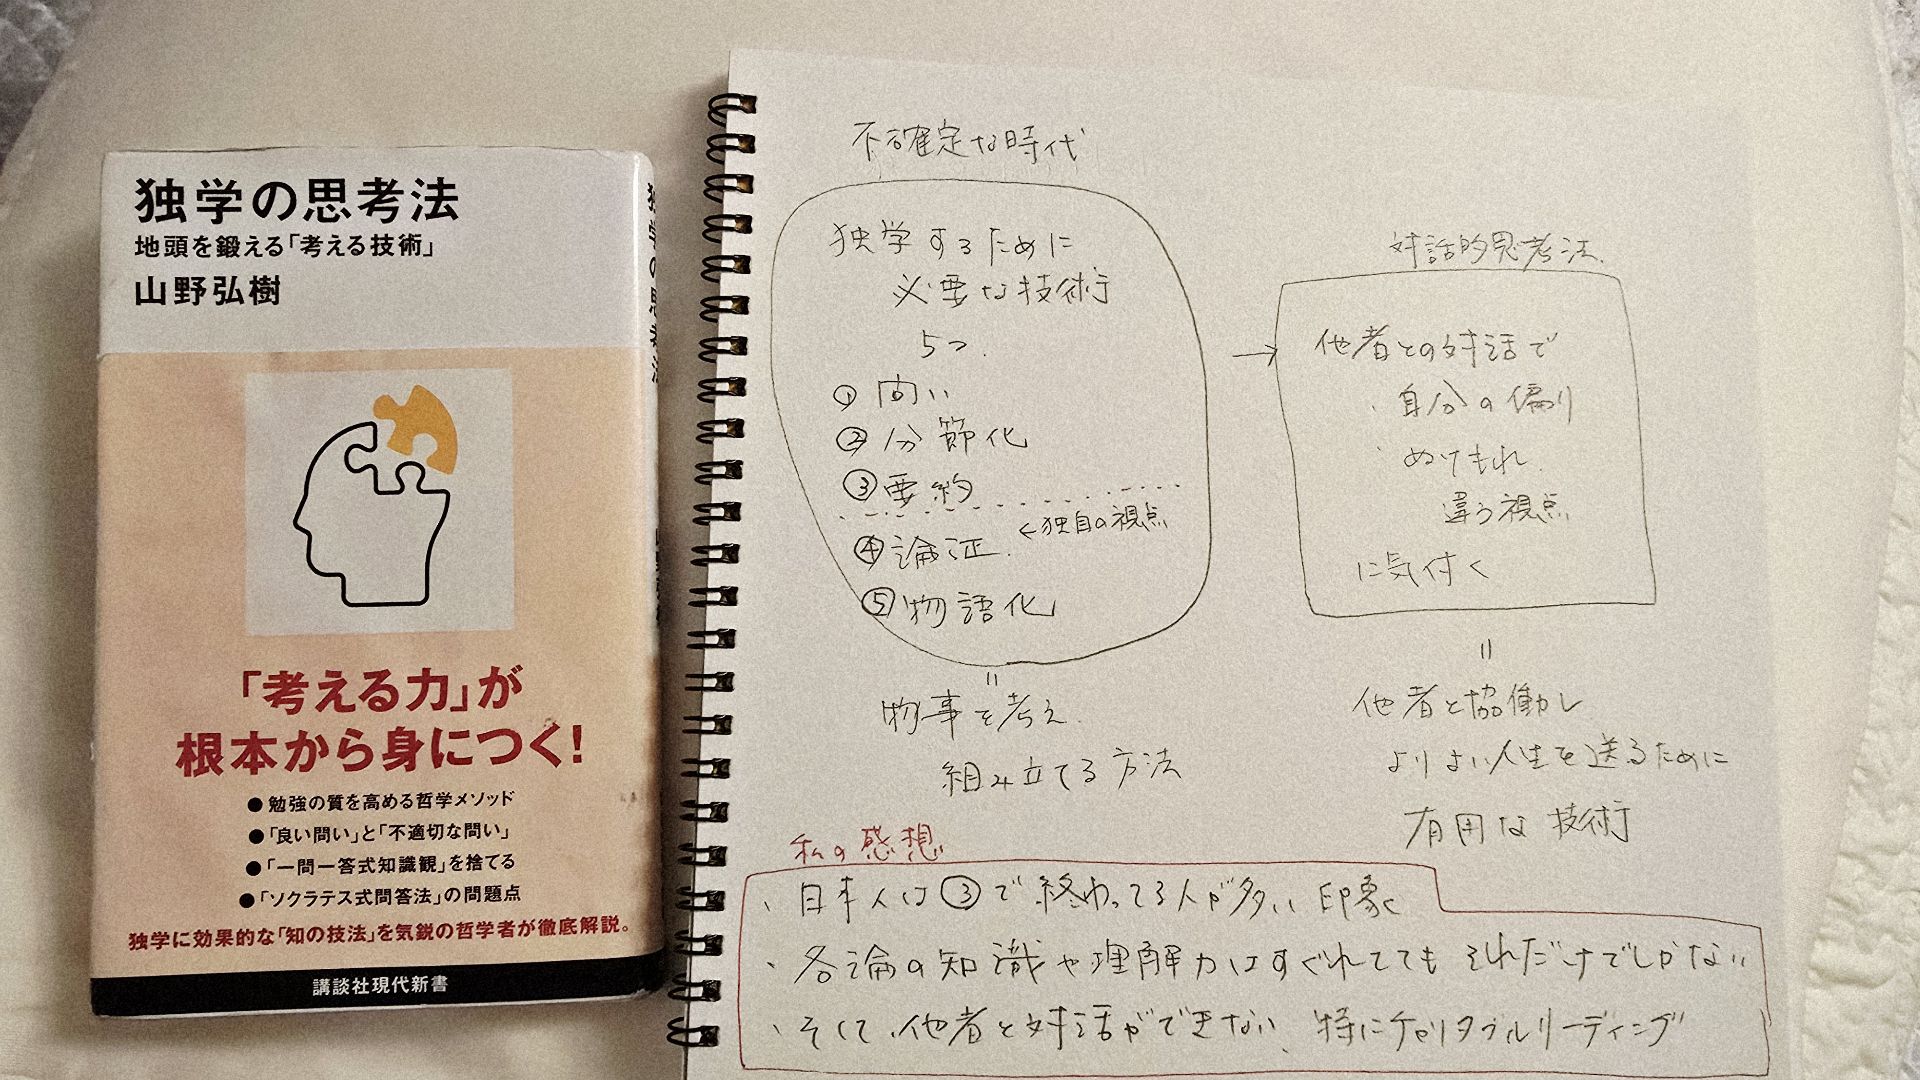 独学の思考法
地頭を鍛える「考える技術」
山野弘樹
「考える力」が
根本から身につく!
●勉強の質を高める哲学メソッド
●「良い問い」と「不適切な問い」
●「一問一答式知識観」を捨てる
●「ソクラテス式問答法」の問題点
独学に効果的な「知の技法」を気鋭の哲学者が徹底解説。
講談社現代新書
不確定な時代
独学するために
必要な技術
5つ.
① 問い
② 分節化
③ 要約
←独自の視点
④ 論証.
⑤ 物語化
=
物事を考え.
組み立てる方法
→
対話的思考法.
他者との対話で
・自分の偏り
・ぬけもれ.
違う視点
に気付く
=
他者と協働し
よりよい人生を送るために
有用な技術
私の感想
・日本人は③で終わってる人が多い印象
・各論の知識や理解力はすぐれててもそれだけでしかない
・そして、他者と対話ができない、特にチャリタブルリーディング